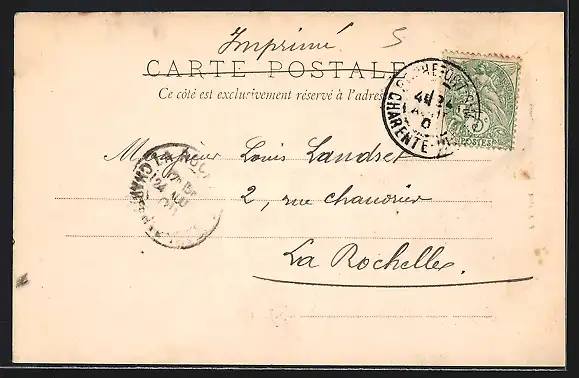 Imprimé
5
CARTE POSTALE
Ce côté est exclusivement réservé à l'adres
CHARENTE
POSTES
Monsieur Louis Landset
2, rue chaudrier
La Rochelle.